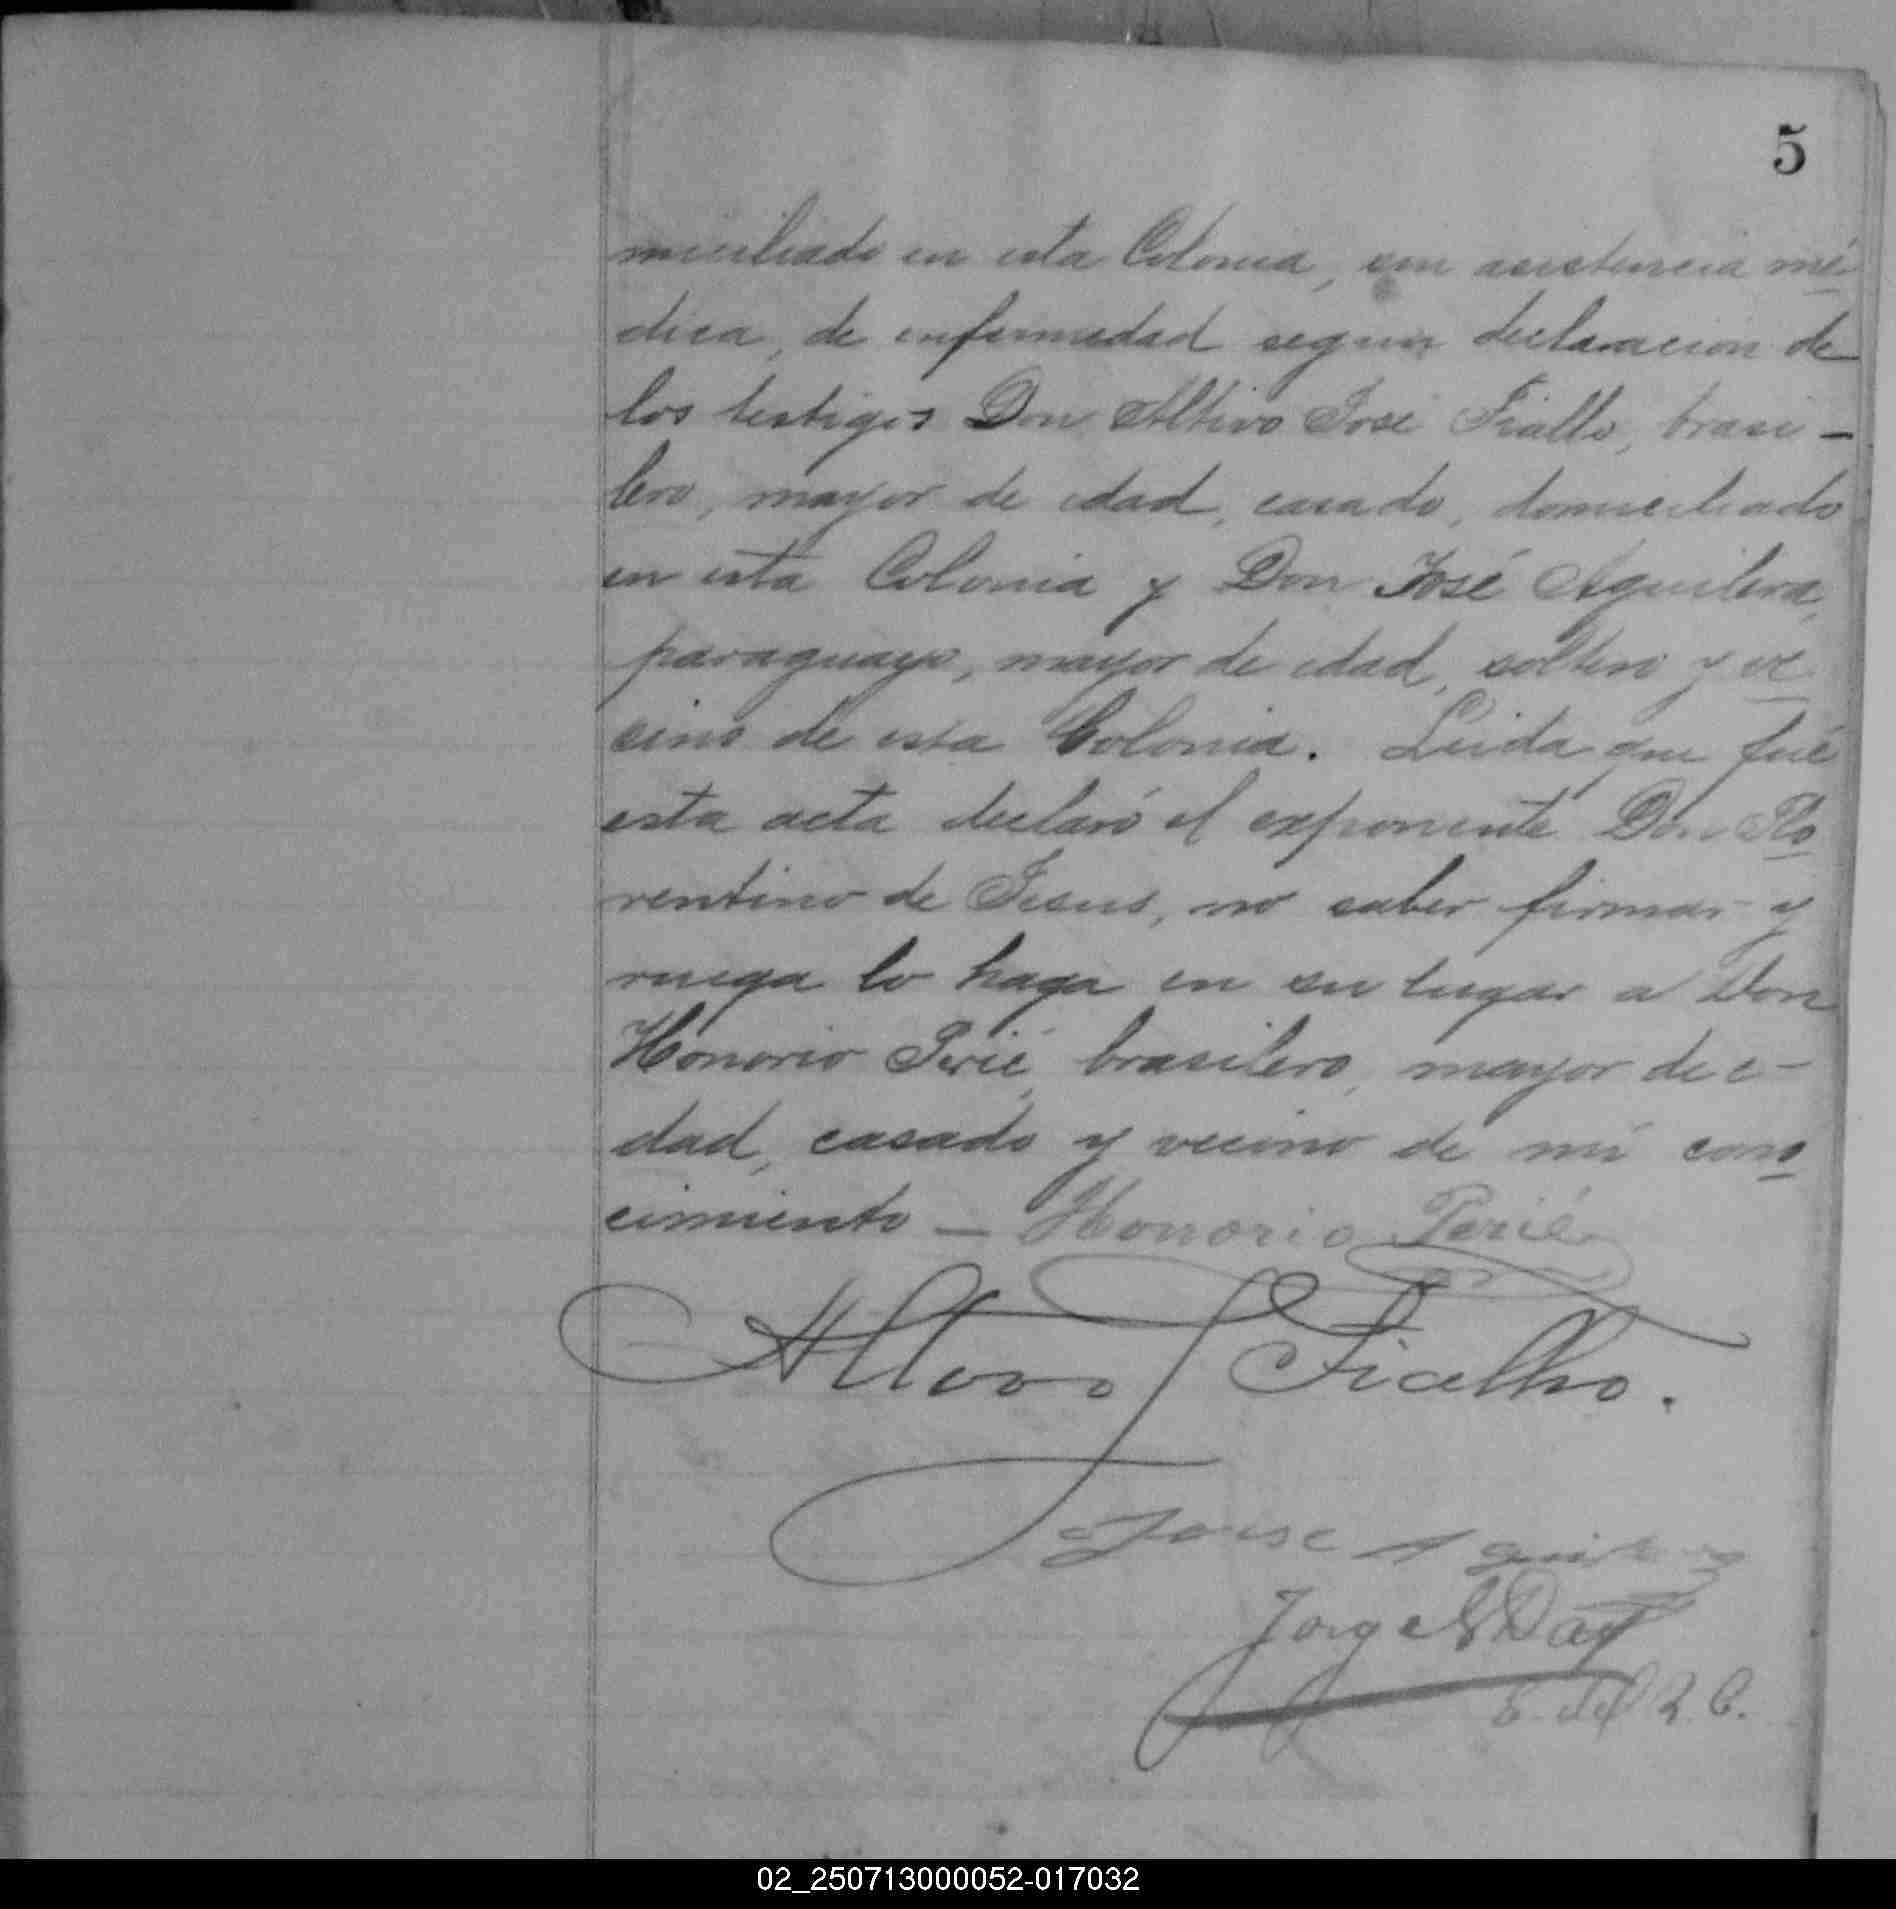 5
miciliado en esta Colonia, sin asistencia mé
dica, de enfermedad segun declaracion de
los testigos Don Altivo José Fiallo, brasi-
lero, mayor de edad, casado, domiciliado
en esta Colonia y Don José Aguilera,
paraguayo, mayor de edad, soltero y ve
cino de esta Colonia. Leida que fué
esta acta declaró el exponente Don Flo
rentino de Jesus, no saber firmar y
ruega lo haga en su lugar a Don
Honorio Perié, brasilero, mayor de e-
dad, casado y vecino de mi cono
cimiento - Honorio Perié
Altivo J Fialho.
Jose Aguilera
Jorge Day
E. del R. C.
02_250713000052-017032